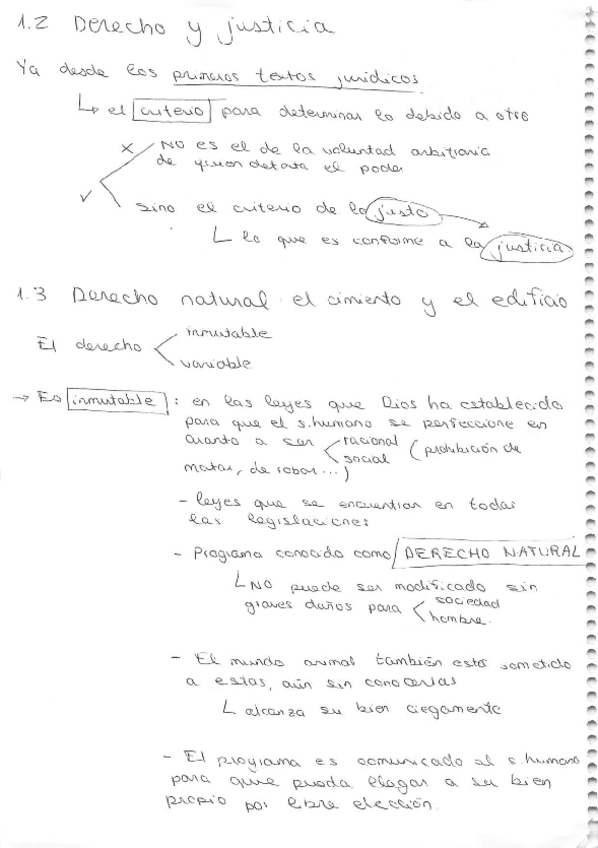 1.2 Derecho y justicia
Ya desde los primeros textos jurídicos
↳ el criterio para determinar lo debido a otro
✗ NO es el de la voluntad arbitraria
de quien detata el poder
✓ sino el criterio de lo justo
lo que es conforme a la justicia
1.3 Derecho natural: el cimiento y el edificio
El derecho
inmutable
variable
→ Es inmutable: en las leyes que Dios ha establecido
para que el s.humano se perfeccione en
cuanto a ser racional (prohibición de
social
matar, de robar...)
- leyes que se encuentran en todas
las legislaciones
- Programa conocido como DERECHO NATURAL
NO puede ser modificado sin
graves daños para sociedad
hombre.
- El mundo animal también está sometido
a estas, aún sin conocerlas
alcanza su bien ciegamente
- El programa es comunicado al s.humano
para que pueda llegar a su bien
propio por libre elección.